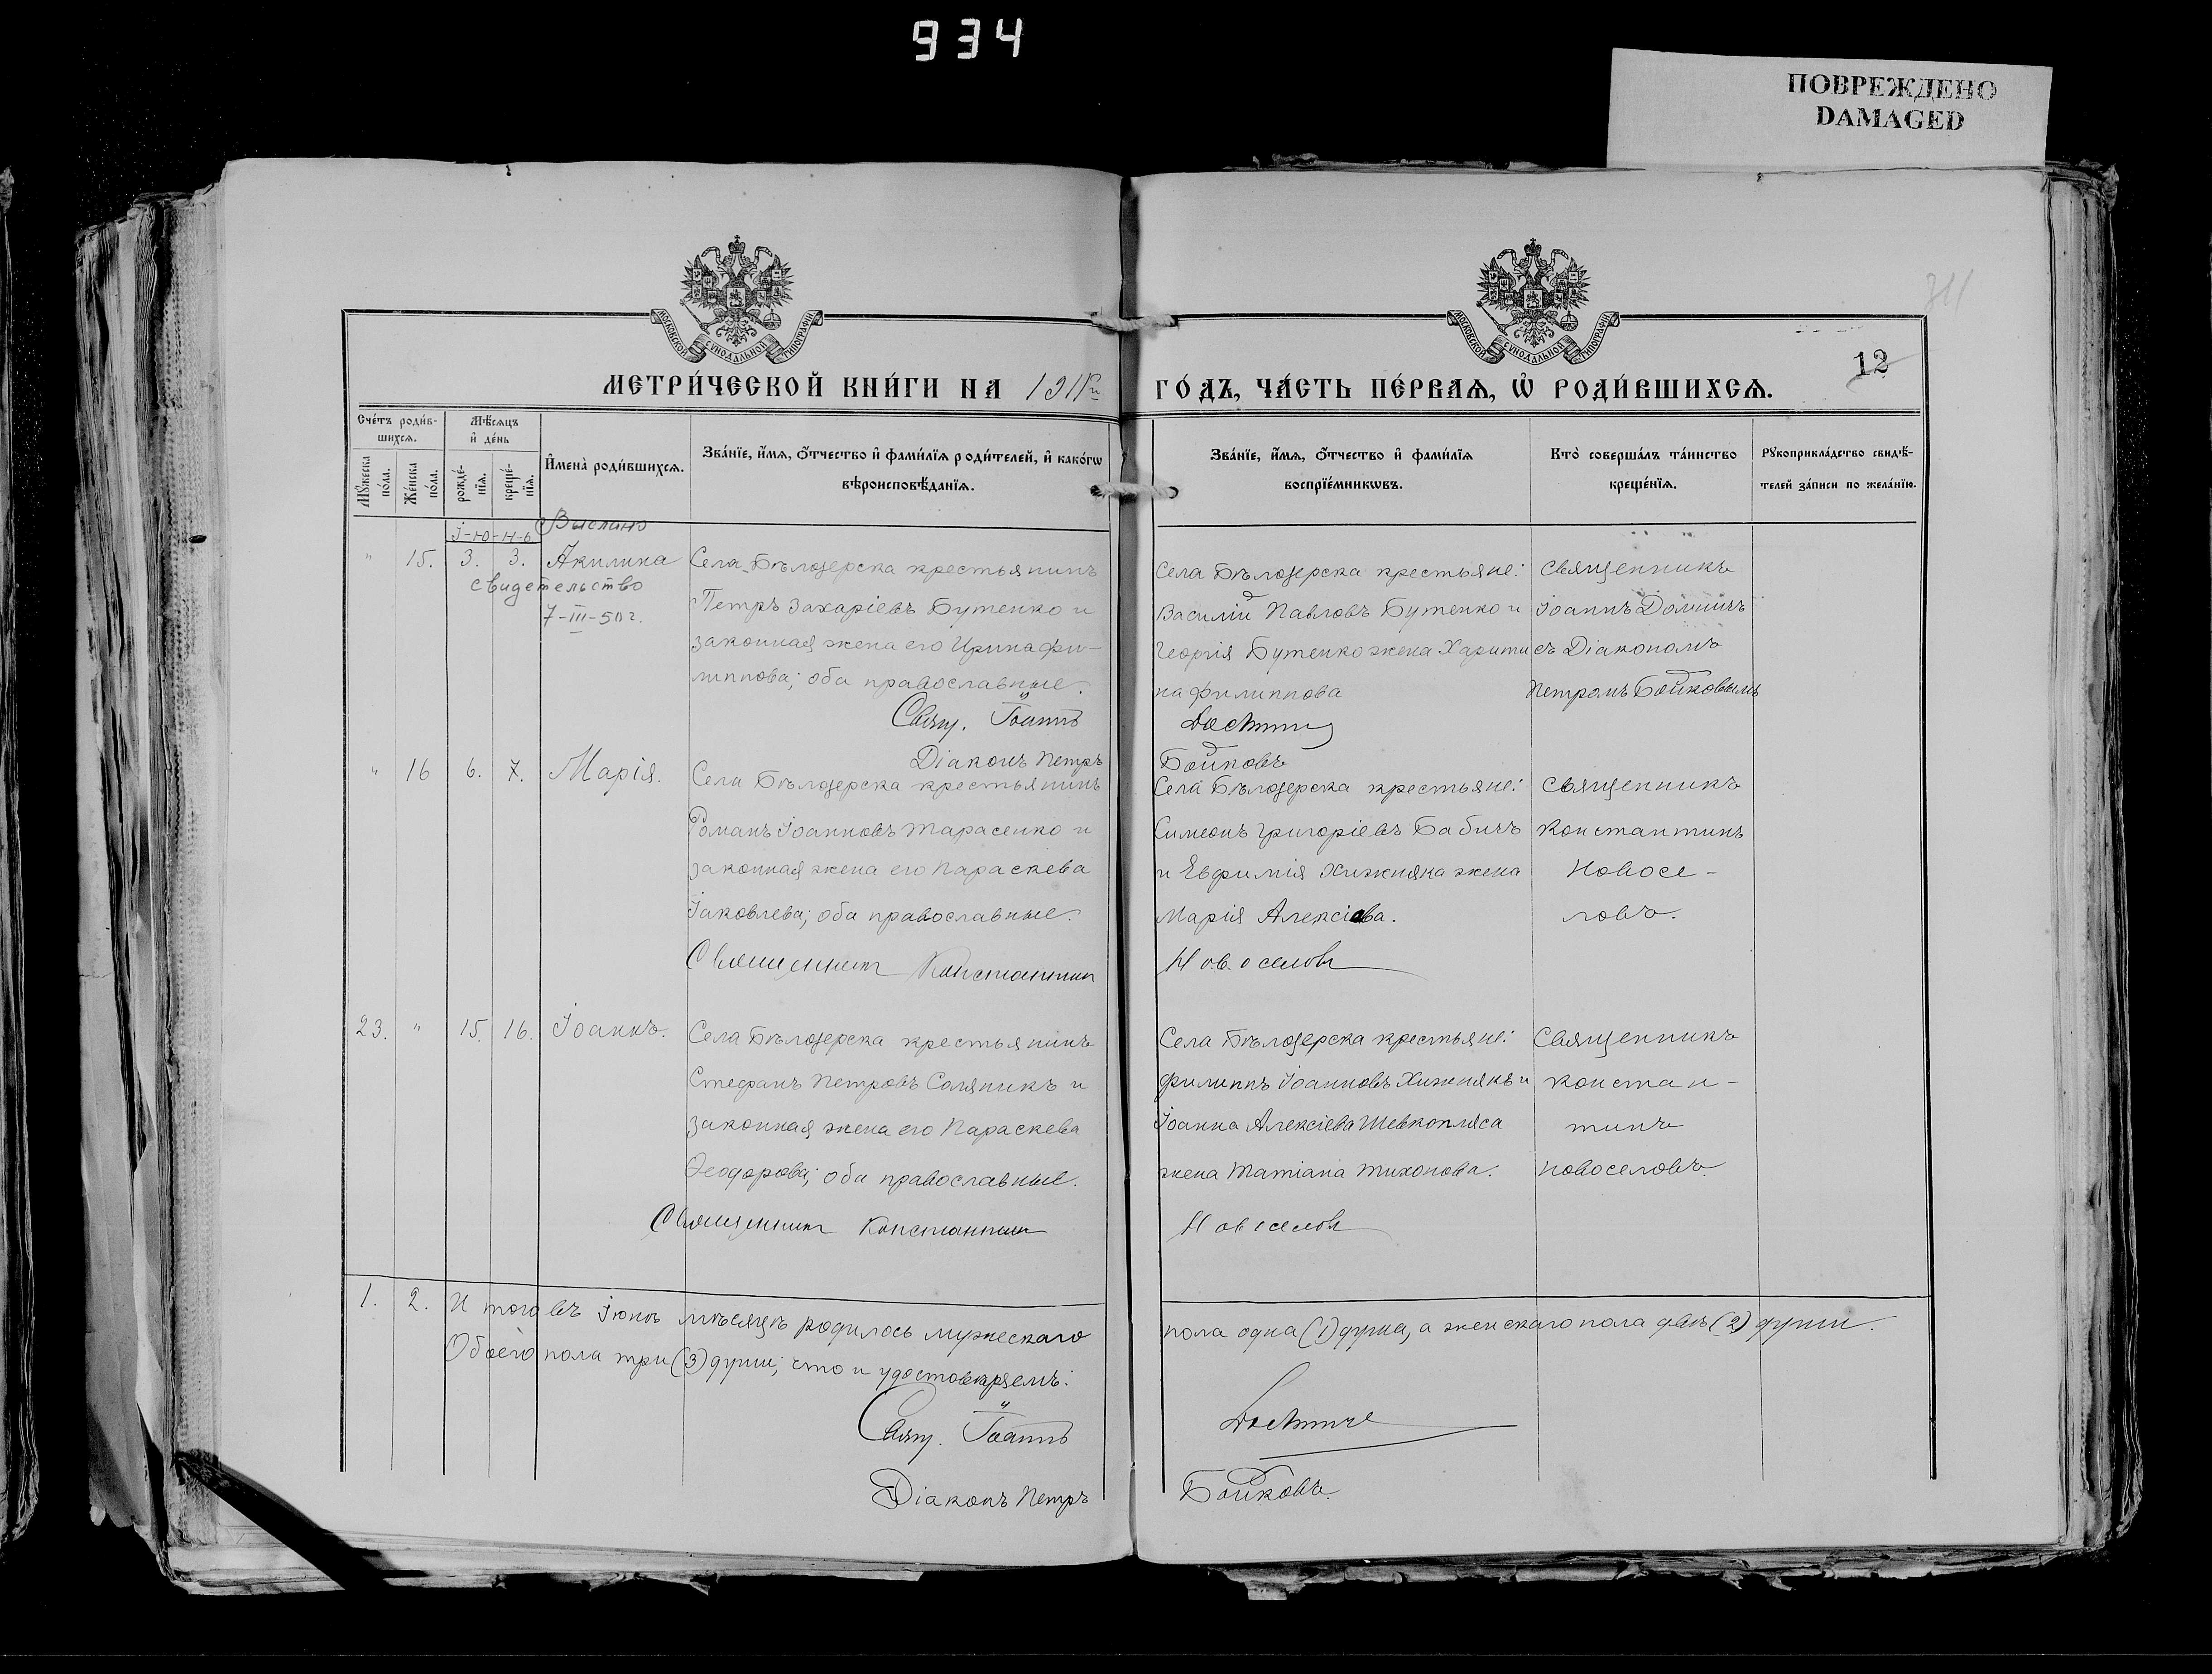 934
ПОВРЕЖДЕНО
DAMAGED
МОСКОВСКОЙ СѴНОДАЛЬНОЙ ТИПОГРАФІИ
МОСКОВСКОЙ СѴНОДАЛЬНОЙ ТИПОГРАФІИ
12
МЕТРИ́ЧЕСКОЙ КНИ́ГИ НА 1911 ГО́ДЪ, ЧА́СТЬ ПЕ́РВАѦ, Ѡ҆ РОДИ́ВШИХСѦ.
Сче́тъ роди́в-
шихсѧ.
Мѣ́сѧцъ
и҆ де́нь
Мꙋ́жеска
по́ла.
Же́нска
по́ла.
рожде́-
нїѧ.
креще́-
нїѧ.
И҆мена̀ роди́вшихсѧ.
Зва́нїе, и҆́мѧ, ѻ҆́тчество и҆ фами́лїѧ роди́телей, и҆ како́гѡ
вѣроисповѣ́данїѧ.
Зва́нїе, и҆́мѧ, ѻ҆́тчество и҆ фами́лїѧ
воспрїе́мникѡвъ.
Кто̀ соверша́лъ та́инство
креще́нїѧ.
Рꙋкоприкла́дство свидѣ́-
телей за́писи по жела́нїю.
І-ю-н-ь
Выслано
" 15. 3. 3. Акилина
свидетельство
7-III-50 г.
Села Бѣлозерска крестьянинъ
Петръ Захаріевъ Бутенко и
законная жена его Ирина Фи-
липпова; оба православные.
Свящ. Іоаннъ
Діаконъ Петръ
Села Бѣлозерска крестьяне:
Василій Павловъ Бутенко и
Георгія Бутенко жена Харити
на Филиппова
Бойковъ
Священникъ
Іоаннъ
съ Діакономъ
Петромъ Бойковымъ
" 16 6. 7. Марія.
Села Бѣлозерска крестьянинъ
Романъ Іоанновъ Тарасенко и
законная жена его Параскева
Іаковлева; оба православные.
Священникъ Константинъ
Села Бѣлозерска крестьяне:
Симеонъ Григоріевъ Бабичъ
и Евфимія Хижняка жена
Марія Алексіева.
Новоселовъ
Священникъ
Константинъ
Новосе-
ловъ.
23. " 15. 16. Іоаннъ.
Села Бѣлозерска крестьянинъ
Стефанъ Петровъ Соляникъ и
законная жена его Параскева
Ѳеодорова; оба православные.
Священникъ Константинъ
Села Бѣлозерска крестьяне:
Филиппъ Іоанновъ Хижнякъ и
Іоанна Алексіева Шевкопляса
жена Татіана Тихонова.
Новоселовъ
Священникъ
Констан-
тинъ
Новоселовъ.
1. 2. Итого въ Іюнѣ мѣсяцѣ родилось мужескаго пола одна (1) душа, а женскаго пола двѣ (2) души.
Обоего пола три (3) души; что и удостовѣряемъ:
Свящ. Іоаннъ
Діаконъ Петръ Бойковъ.